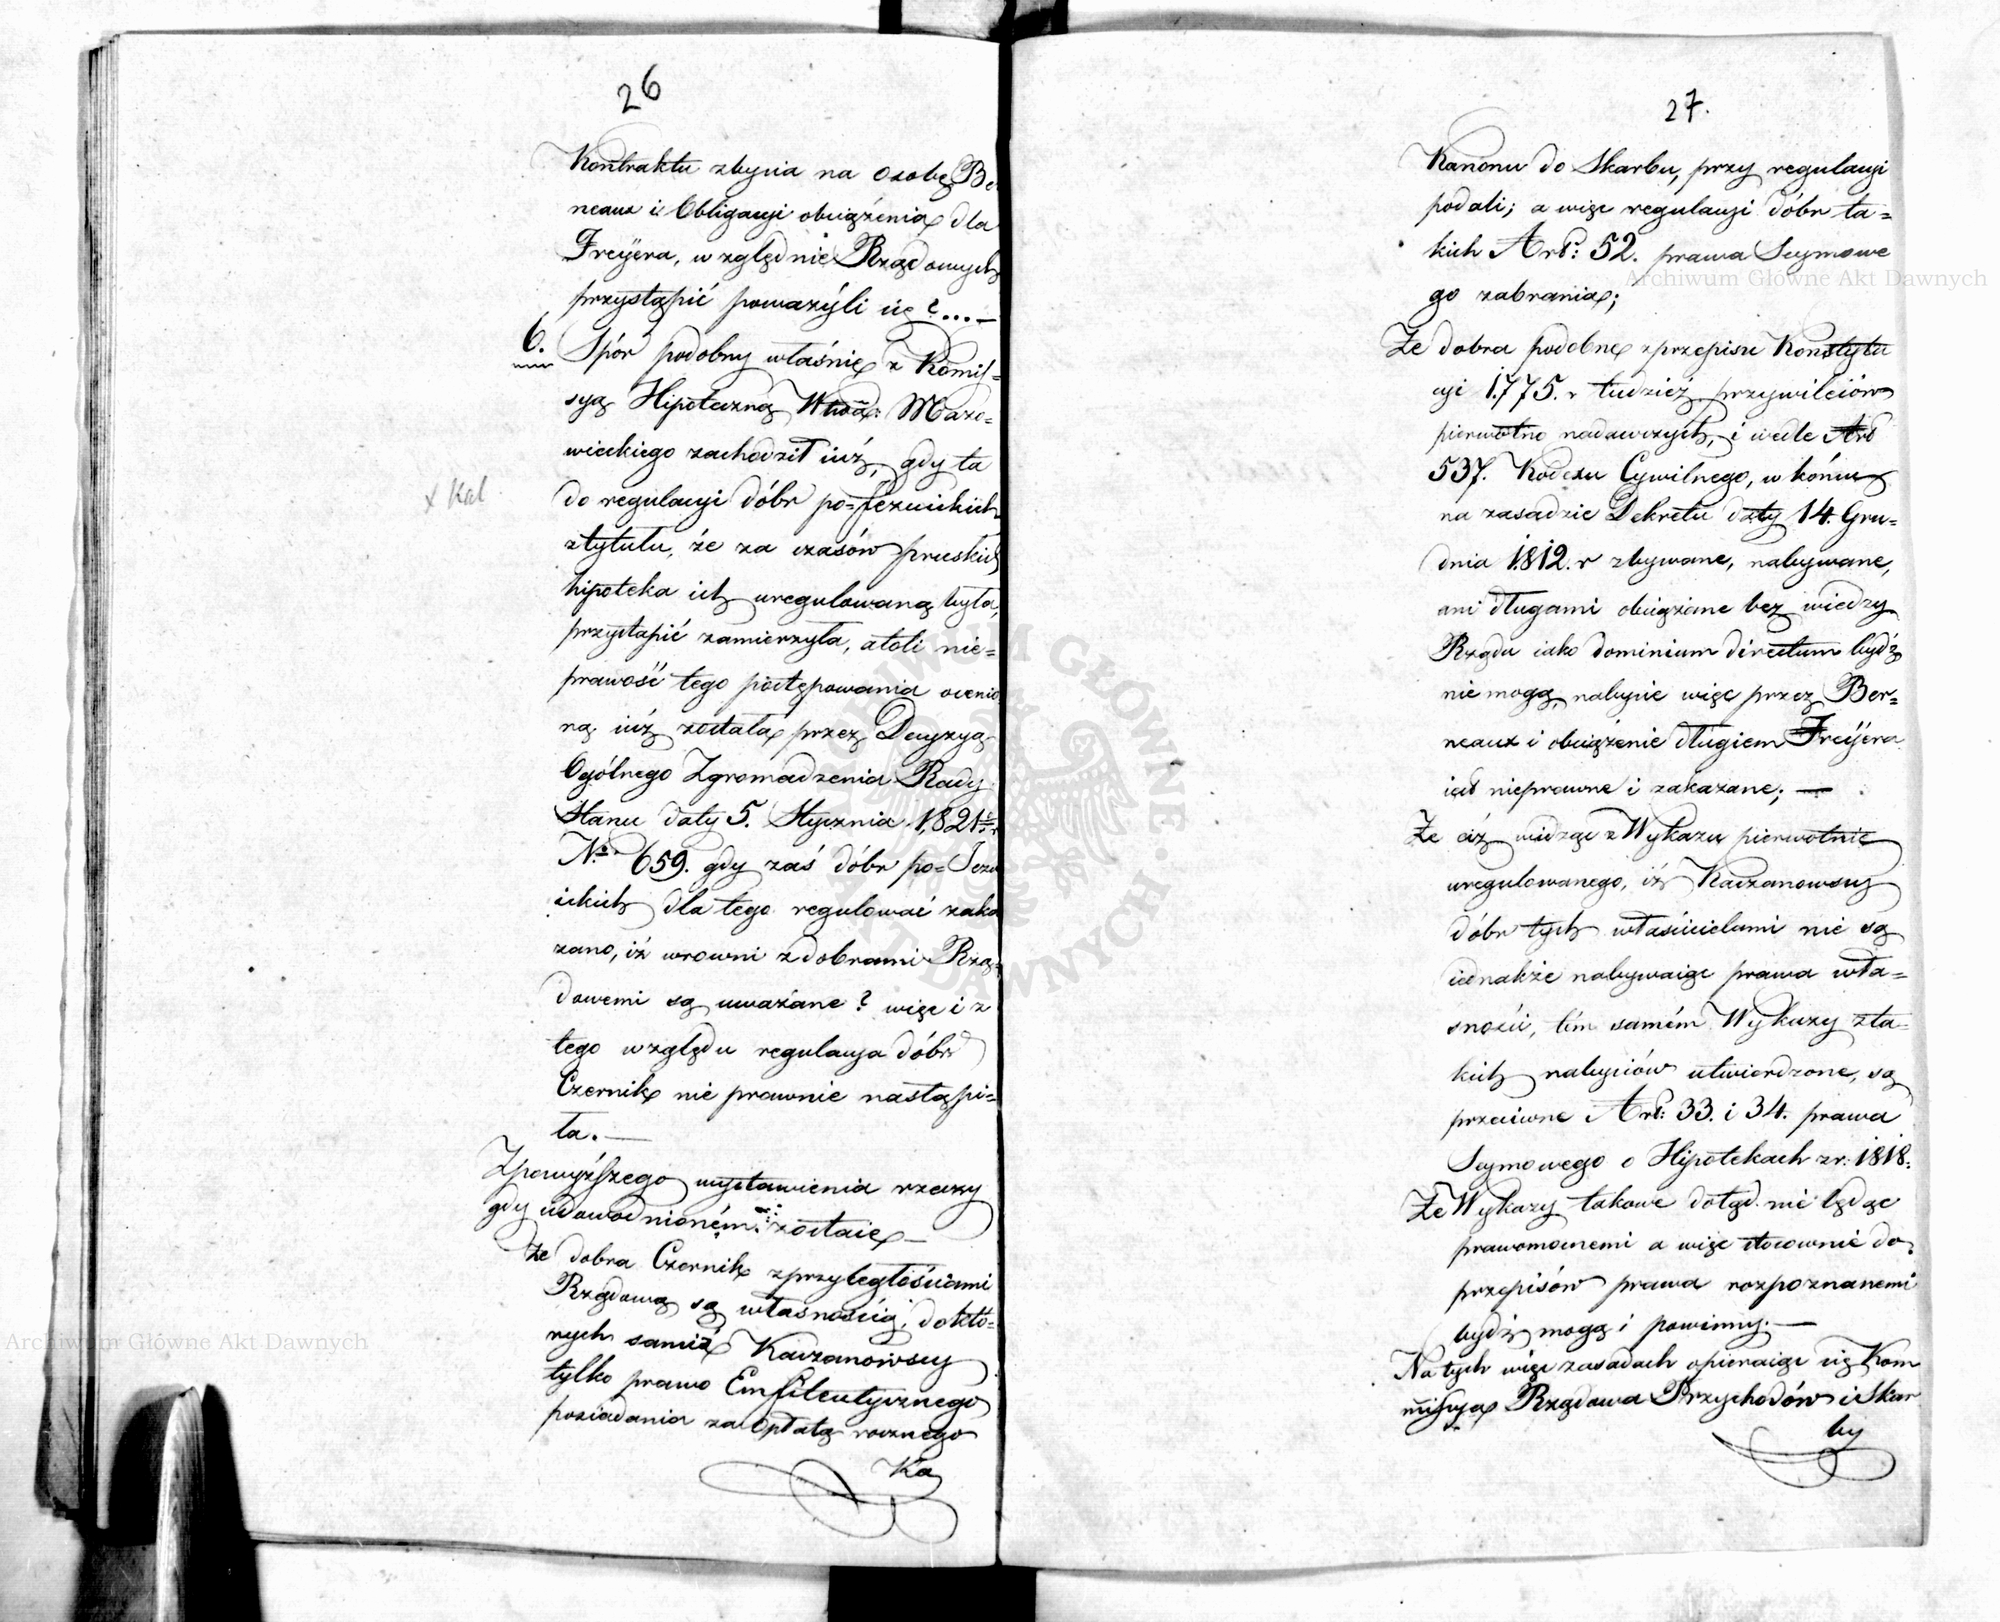 26
Kontraktu zbycia na osobę Be
neaux i Obligacyi obciążenia dla
Freÿera, względnie Rządowych
przystąpić poważyli się?...—
6. Spór podobny właśnie z Komis-
syą Hipoteczną Wtwa: Mazo=
wieckiego zachodził iuż, gdy ta
x Kal
do regulacyi dóbr po=Jezuickich
ztytułu, że za czasów pruskich
hipoteka ich uregulowaną była,
przystąpić zamierzyła, atoli nie=
prawość tego postępowania ocenio
ną iuż została przez Decyzyą
Ogólnego Zgromadzenia Rady
Stanu daty 5. Stycznia 1821 r
No 659. gdy zaś dóbr po=Jezu
ickich dla tego regulować zaka
zano, iż wrowni z dobrami Rzą=
dowemi są uważane? więc i z
tego względu regulacya dóbr
Czernik nie prawnie nastąpi=
ła.—
Zpowyższego wystawienia rzeczy
gdy udowodnioném zostaie—
że dobra Czernik zprzyległościami
Rządową są własnością, do któ=
rych samiż Kaczanowscy
tylko prawo Emfiteutycznego
posiadania za opłatą rocznego
Ka
27.
Kanonu do Skarbu, przy regulacyi
podali; a więc regulacyi dóbr ta=
kich Art: 52. prawa Seymowe
go zabrania;
Że dobra podobne zprzepisu Konstytu
cyi 1775. r tudzież przywileiów
pierwotno nadawczych, i wedle Art
537. Kodexu Cywilnego, w końcu
na zasadzie Dekretu daty 14. Gru=
dnia 1812. r zbywane, nabywane,
ani długami obciążane bez wiedzy
Rządu iako dominium directum bydź
nie mogą, nabycie więc przez Ber=
neaux i obciążenie długiem Freÿera
iest nieprawne i zakazane; —
Że ciż widząc z Wykazu pierwotnie
uregulowanego, iż Kaczanowscy
dóbr tych właścicielami nie są
iednakże nabywaiąc prawa wła=
sności, tém samém Wykazy zta=
kich nabyciów utwierdzone, są
przeciwne Art: 33. i 34. prawa
Seymowego o Hipotekach zr: 1818.
Że Wykazy takowe dotąd nie będąc
prawomocnemi a więc stosownie do
przepisów prawa rozpoznanemi
bydź mogą i powinny.—
Na tych więc zasadach opieraiąc się Kom
missya Rządowa Przychodów i Skar
by
Archiwum Główne Akt Dawnych
Archiwum Główne Akt Dawnych
ARCHIWUM GŁÓWNE AKT DAWNYCH